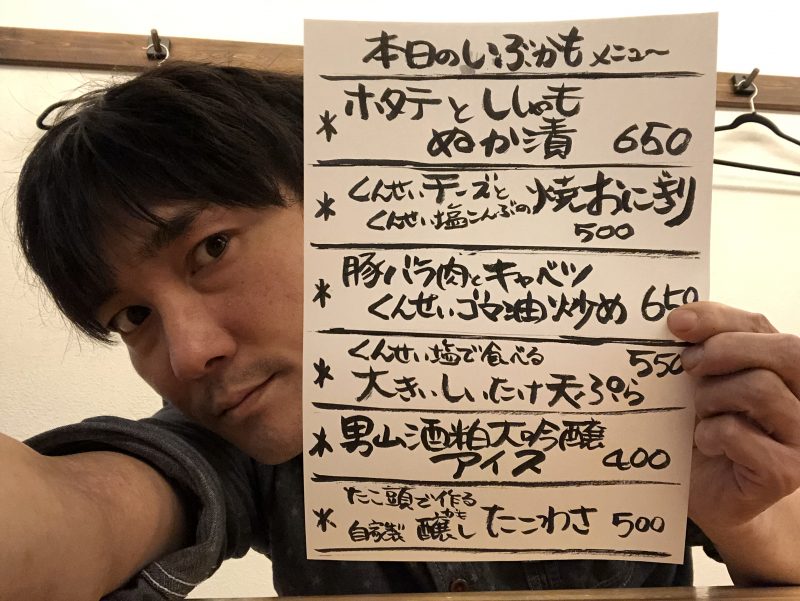 本日のいぶかもメニュー
＊ ホタテとししゃも
ぬか漬 650
＊ くんせいチーズと
くんせい塩こんぶの焼おにぎり
500
＊ 豚バラ肉とキャベツ
くんせいゴマ油炒め 650
＊ くんせい塩で食べる 550
大きいしいたけ天ぷら
＊ 男山酒粕大吟醸
アイス 400
＊ たこ頭で作る
自家製 醸し かも たこわさ 500